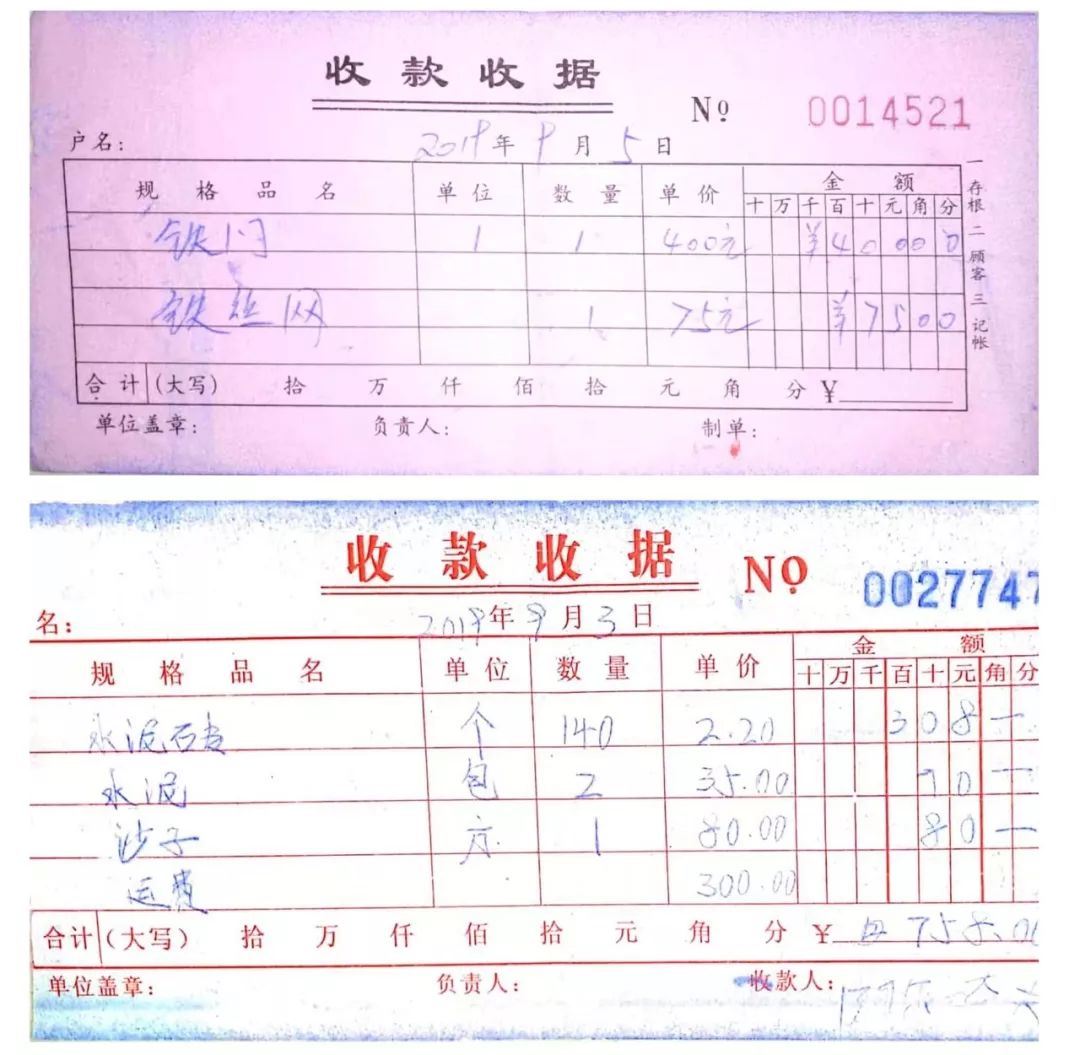 收款收据
No 0014521
户名: 2019年9月5日
规格品名 单位 数量 单价 金额
十万千百十元角分
铁门 1 1 400元 ¥40000
铁丝网 1 75元 ¥7500
合计 (大写) 拾 万 仟 佰 拾 元 角 分 ¥
单位盖章: 负责人: 制单:
一存根二顾客三记帐
收款收据
No 0027747
名: 2019年9月3日
规格品名 单位 数量 单价 金额
十万千百十元角分
水泥石 个 140 2.20 308一
水泥 包 2 35.00 70一
沙子 方 1 80.00 80一
运费 300.00
合计 (大写) 拾 万 仟 佰 拾 元 角 分 ¥ 758.00
单位盖章: 负责人: 收款人: